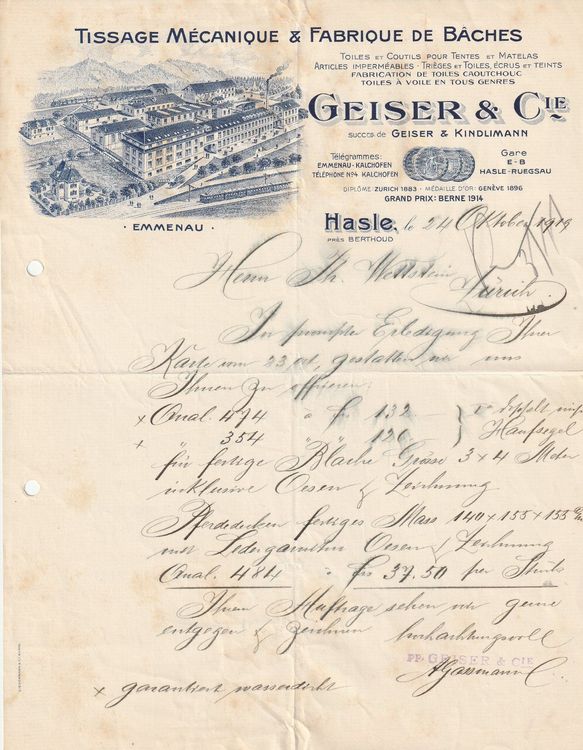 TISSAGE MÉCANIQUE & FABRIQUE DE BÂCHES
TOILES ET COUTILS POUR TENTES ET MATELAS
ARTICLES IMPERMÉABLES · TRIÈGES ET TOILES, ÉCRUS ET TEINTS
FABRICATION DE TOILES CAOUTCHOUC
TOILES À VOILE EN TOUS GENRES
GEISER & CIE
SUCCRS DE GEISER & KINDLIMANN
Télégrammes:
EMMENAU - KALCHOFEN
TÉLÉPHONE No 4 KALCHOFEN
Gare
E - B
HASLE - RUEGSAU
DIPLÔME: ZURICH 1883 · MÉDAILLE D'OR: GENÈVE 1896
GRAND PRIX: BERNE 1914
· EMMENAU ·
Hasle, le 24 Oktober 1919
PRÈS BERTHOUD
Herrn Th. Wettstein,
Zürich.
In prompter Erledigung Ihrer
Karte vom 23. ct, gestatten wir uns
Ihnen zu offrieren:
x Qual. 474 à frs 132
+ " 354 " 126
Ia doppelt
Hanfsegel
für fertige Blache Grösse 3 x 4 Meter
inklusive Oesen & Zeichnung
Pferdedecken fertiges Mass 140 x 155 x 155
mit Ledergarnitur Oesen & Zeichnung
Qual. 484 à frs 37.50 per Stück
Ihrem Auftrage sehen wir gerne
entgegen & zeichnen hochachtungsvoll
PP. GEISER & CIE
x garantiert wasserdicht